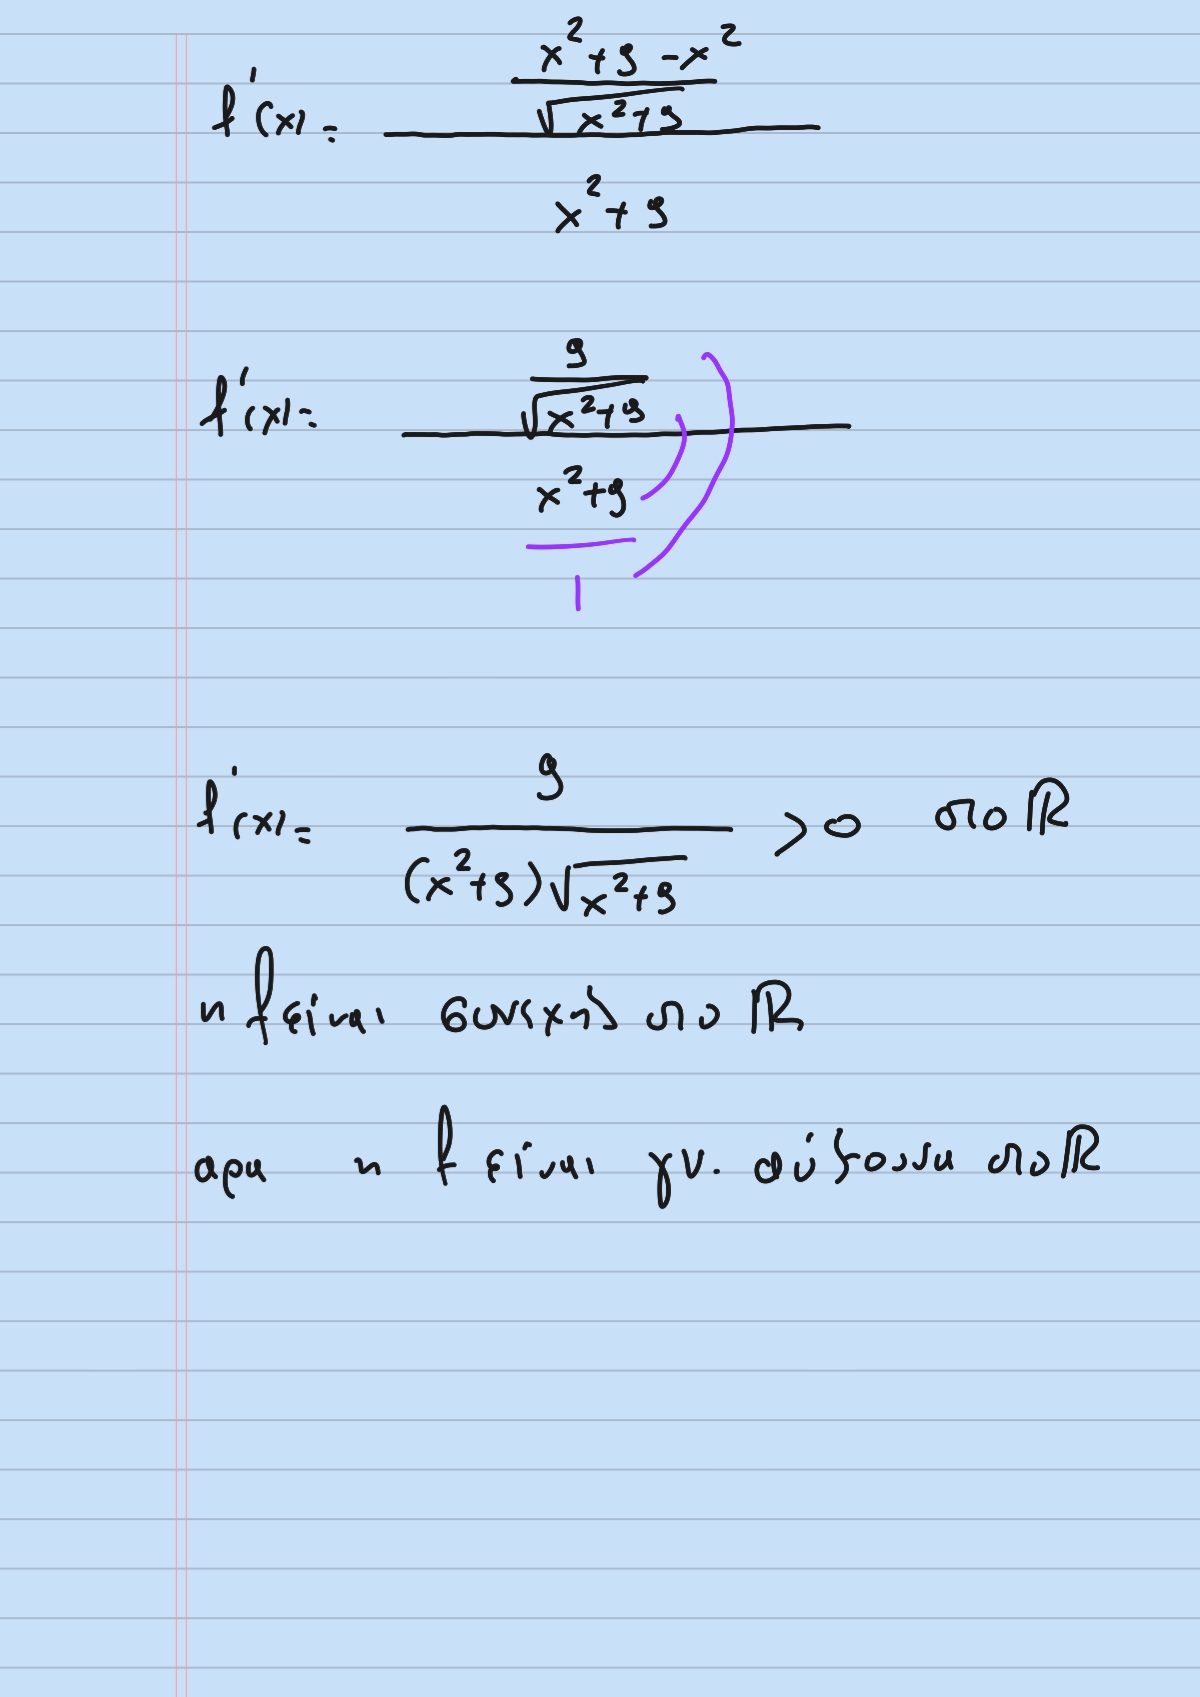 f'(x) = \frac{\frac{x^2+9-x^2}{\sqrt{x^2+9}}}{x^2+9}
f'(x) = \frac{\frac{9}{\sqrt{x^2+9}}}{\frac{x^2+9}{1}}
f'(x) = \frac{9}{(x^2+9)\sqrt{x^2+9}} > 0 στο ℝ
η f είναι συνεχής στο ℝ
αρα η f είναι γν. αύξουσα στο ℝ